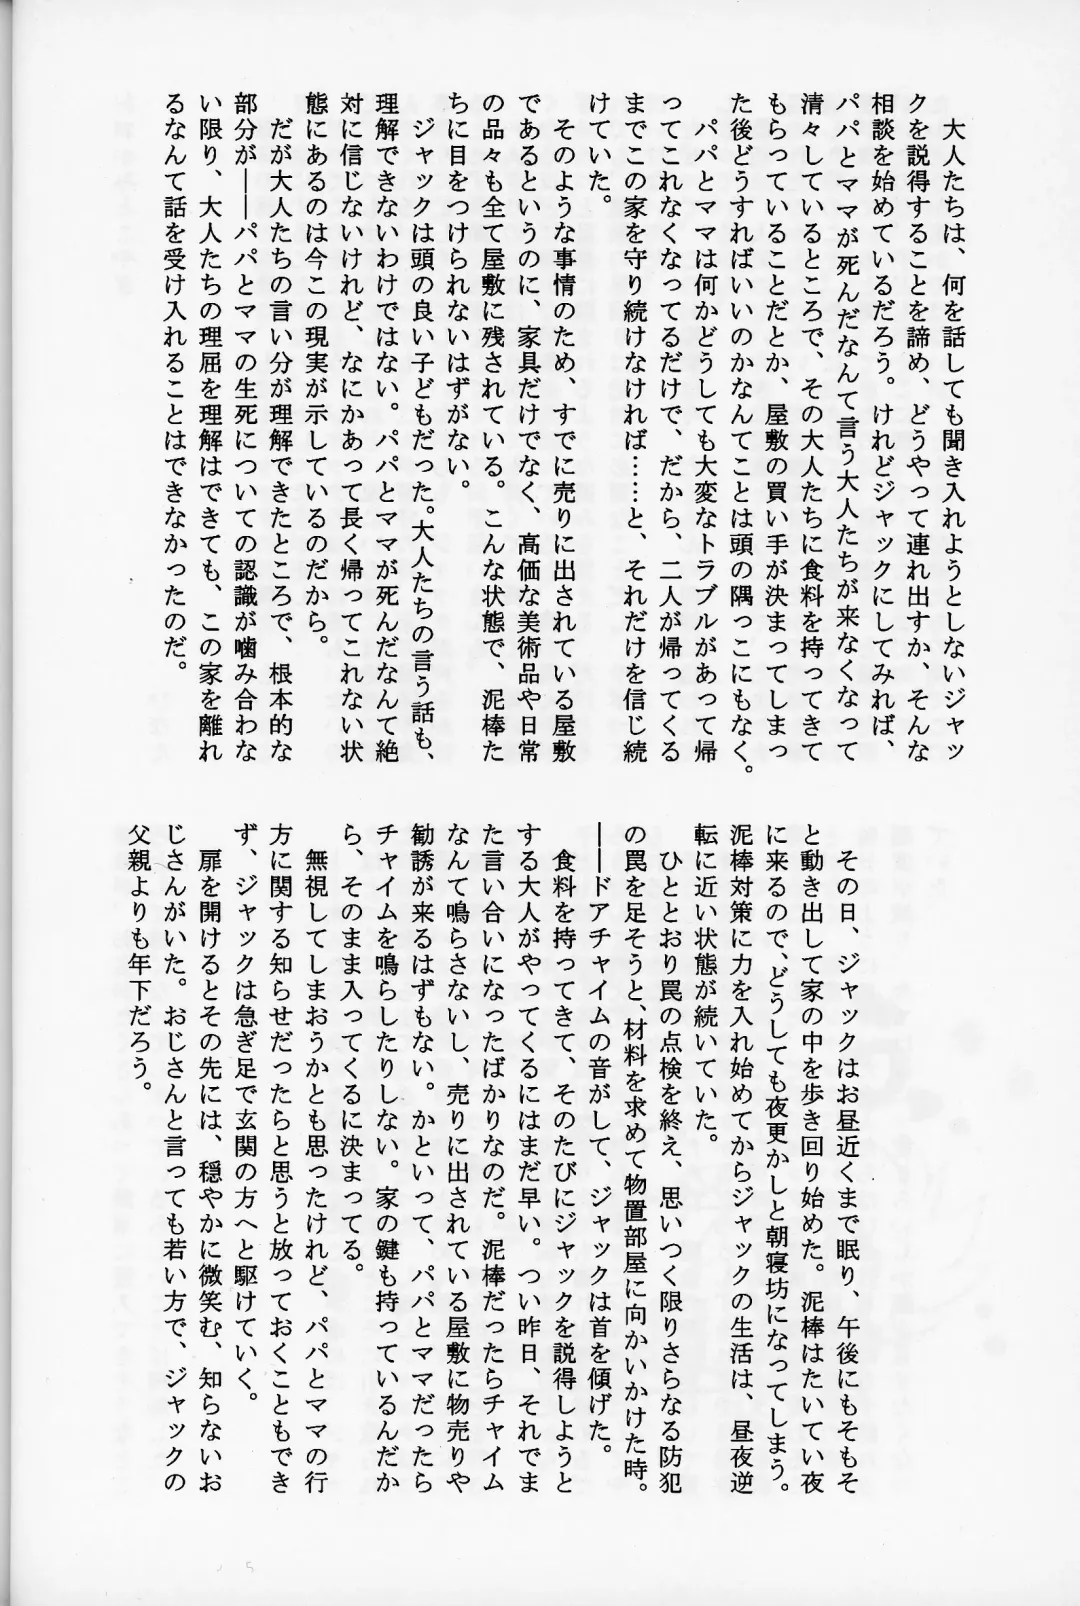 大人たちは、何を話しても聞き入れようとしないジャッ
クを説得することを諦め、どうやって連れ出すか、そんな
相談を始めているだろう。けれどジャックにしてみれば、
パパとママが死んだなんて言う大人たちが来なくなって
清々しているところで、その大人たちに食料を持ってきて
もらっていることだとか、屋敷の買い手が決まってしまっ
た後どうすればいいのかなんてことは頭の隅っこにもなく。
　パパとママは何かどうしても大変なトラブルがあって帰
ってこれなくなってるだけで、だから、二人が帰ってくる
までこの家を守り続けなければ……と、それだけを信じ続
けていた。
　そのような事情のため、すでに売りに出されている屋敷
であるというのに、家具だけでなく、高価な美術品や日常
の品々も全て屋敷に残されている。こんな状態で、泥棒た
ちに目をつけられないはずがない。
　ジャックは頭の良い子どもだった。大人たちの言う話も、
理解できないわけではない。パパとママが死んだなんて絶
対に信じないけれど、なにかあって長く帰ってこれない状
態にあるのは今この現実が示しているのだから。
　だが大人たちの言い分が理解できたところで、根本的な
部分が――パパとママの生死についての認識が噛み合わな
い限り、大人たちの理屈を理解はできても、この家を離れ
るなんて話を受け入れることはできなかったのだ。
　その日、ジャックはお昼近くまで眠り、午後にもそもそ
と動き出して家の中を歩き回り始めた。泥棒はたいてい夜
に来るので、どうしても夜更かしと朝寝坊になってしまう。
泥棒対策に力を入れ始めてからジャックの生活は、昼夜逆
転に近い状態が続いていた。
　ひととおり罠の点検を終え、思いつく限りさらなる防犯
の罠を足そうと、材料を求めて物置部屋に向かいかけた時。
――ドアチャイムの音がして、ジャックは首を傾げた。
　食料を持ってきて、そのたびにジャックを説得しようと
する大人がやってくるにはまだ早い。つい昨日、それでま
た言い合いになったばかりなのだ。泥棒だったらチャイム
なんて鳴らさないし、売りに出されている屋敷に物売りや
勧誘が来るはずもない。かといって、パパとママだったら
チャイムを鳴らしたりしない。家の鍵も持っているんだか
ら、そのまま入ってくるに決まってる。
　無視してしまおうかとも思ったけれど、パパとママの行
方に関する知らせだったらと思うと放っておくこともでき
ず、ジャックは急ぎ足で玄関の方へと駆けていく。
　扉を開けるとその先には、穏やかに微笑む、知らないお
じさんがいた。おじさんと言っても若い方で、ジャックの
父親よりも年下だろう。